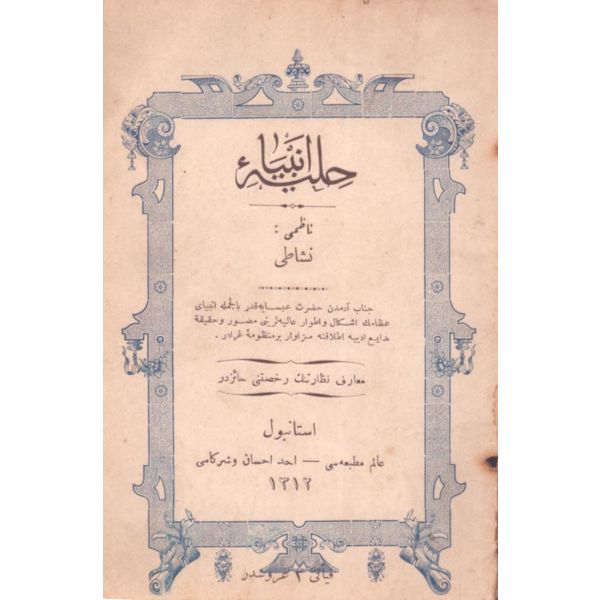 حليهٔ انبيا
ناظمی :
نشاطی
جناب آدمدن حضرت عيسايه قدر بالجمله انبيای
عظامك اشكال و اطوار عاليه لرينی مصور و حقيقة
بدايع ادبيه اطلاقنه سزاوار بر منظومهٔ غرادر .
معارف نظارتنك رخصتنی حائزدر
استانبول
عالم مطبعه سی — احمد احسان و شركاسی
١٣١٢
فيأتی ٣ غروشدر